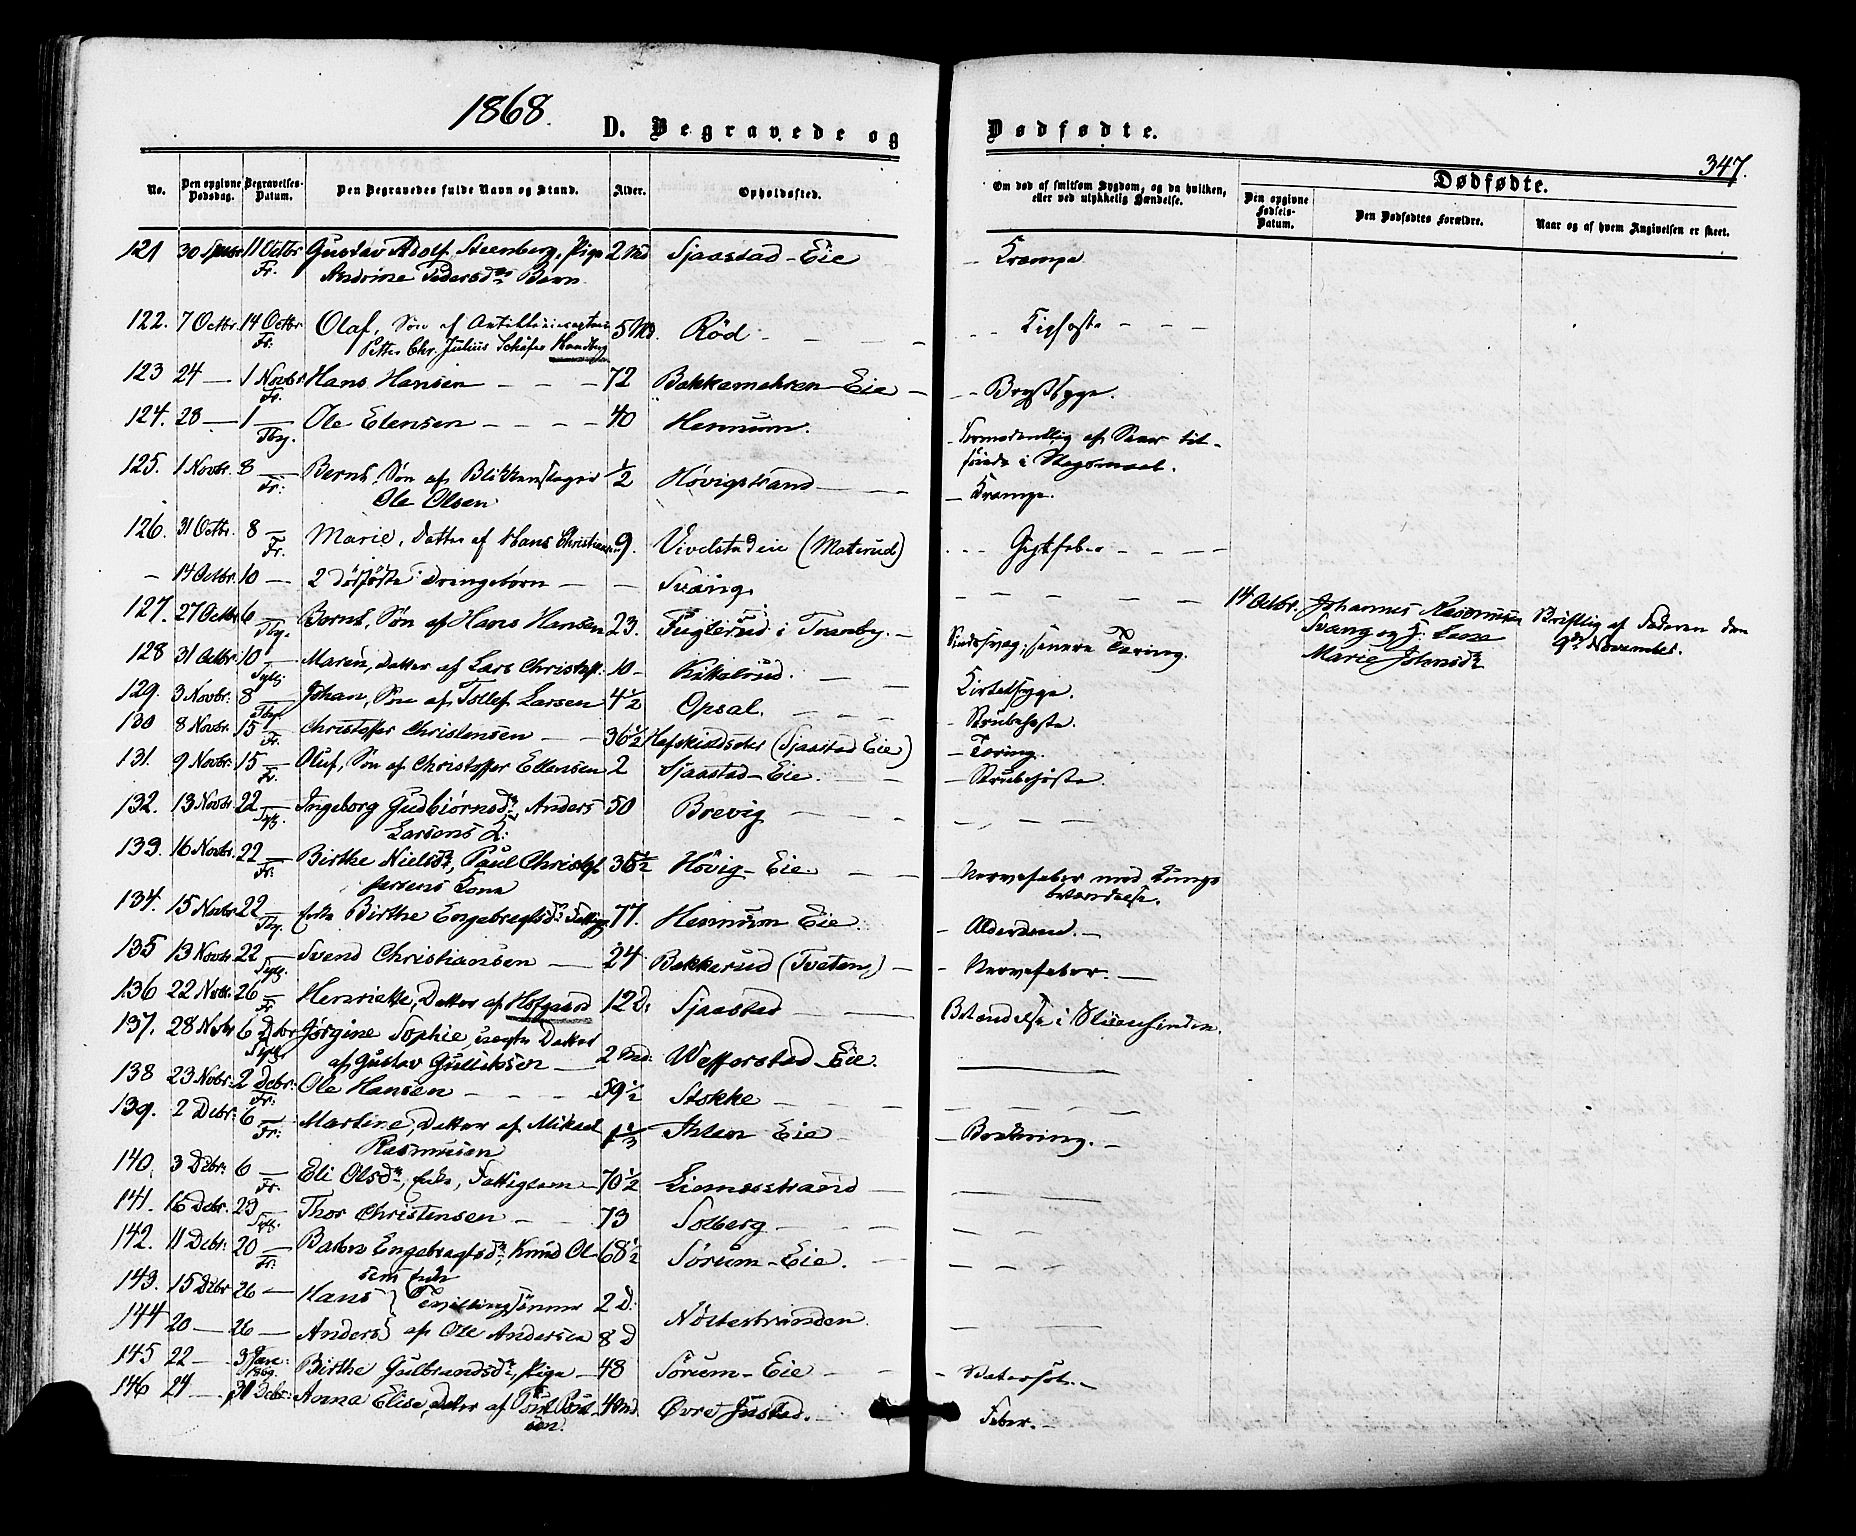 1868.
D. Begravede og
Dødfødte.
347.
No.
Den opgivne Dødsdag.
Begravelses-Datum.
Den Begravedes fulde Navn og Stand.
Alder.
Opholdssted.
Om død af smitsom Sygdom, og da hvilken,
eller ved ulykkelig Hændelse.
Dødfødte.
Den opgivne Fødsels-Datum.
Den Dødfødtes Forældre.
Naar og af hvem Angivelsen er skeet.
121 11 Octbr Gustav Adolf Steenberg, Pige 2 Md Sjaastad-Eie - Krampe
Fr. Andrine Pedersdr Barn
122. 7 Octbr. 14 Octbr Olaf, Søn af 5 Md. Röd - - Kighoste - - -
Fr. Petter Chr. Julius
123 24 — 1 Novbr. Hans Hansen - - - 72 Eie - - - Brystsyge.
Fr.
124. 28 — 1 — Ole Ellensen - - - - 40 Hennum.
Tbg. af
125. 1 Novbr. 8 — Bernt, Søn af Blikkenslager 1/2 Hövigstrand - Krampe.
Fr: Ole Olsen
126. 31 Octbr. 8 — Marie, Datter af Hans Christiansen 9. Vivelstadeie - - - Gigtfeber - - -
Fr.
- 14 Octbr. 10 — 2 dødfødte Drengebørn - - Svang.
14 Octbr. Johannes Rasmussen Skriftlig af Faderen den
Svang og h. Kone 9de November.
Marie Johnsdr
127. 27 Octbr 6 — Bernt, Søn af Hans Hansen 23. Fuglerud i Tranby. - Sindssvag, senere Tæring.
Tbg.
128 31 Octbr. 10 — Maren, Datter af Lars Christoff. 10 - Kikelrud. - Kirtelsyge.
Sylg.
129. 3 Novbr. 8 — Johan, Søn af Tollef Larsen 4 1/2 Opsal. - Strubehoste.
Tbg.
130 8 Novbr. 15 — Christoffer Christensen - - 36 1/2 (Sjaastad Eie) - Tæring.
Fr.
131. 9 Novbr. 15 — Oluf, Søn af Christoffer Ellensen 2 Sjaastad-Eie. - Strubehoste.
Fr.
132. 13 Novbr 22 — Ingeborg Gudbiörnsdr. Anders 50 Brevig
Sylg. Larsens K:
133. 16 Novbr. 22 — Birthe Nielsdr, Paul Christof 36 1/2 Hövig-Eie. - Nervefeber med Lunge
Fr. fersens Kone betændelse.
134. 15 Novbr 22 — Enke Birthe Engebragtsdr 77. Hennum Eie. - Alderdom. -
Tbg.
135 13 Novbr. 22 — Svend Christiansen - 24 Bakkerud (Tveten) - - Nervefeber. -
Sylg.
136 22 Novbr. 26 — Henriette, Datter af Hofgaard 12 D: Sjaastad Betændelse i Sliimhinden.
Fr.
137. 28 Novbr 6 Debr Jørgine Sophie, uægte Datter
Sylg. af Gustav Gulliksen - 2 Md. Wefferstad-Eie.
138 23 Novbr. 2 Debr: Ole Hansen - - - 59 1/2 Stokke
Fr:
139. 2 Debr: 6 — Martine, Datter af Mikael 1 1/3 Eie - Tæring. -
Fr: Rasmussen
140. 3 Debr: 6 — Eli Olsdr, Enke, Fattiglem - 70 1/2 Liernesstrand
Fr.
141. 16 Debr. 23 — Thor Christensen - - 73 Solberg
Sylg.
142. 11 Debr: 20 — Engebragtsdr, Knud Ol- 68 1/2 Sörum-Eie.
Fr. sens Enke
143. 15 Debr 26 — Hans } Tvillingsönner 2 D. Nösterstranden
144 20 — 26 — Anders af Ole Andersen 8 D
145 22 — 3 Jan: 1869. Birthe Gulbrandsdr, Pige - 48 Sörum-Eie - - Vatersot. -
146 24 — 31 Debr: Anna Elise, Datter af 4 Md. Øvre Justad. - Feber. -
sen.